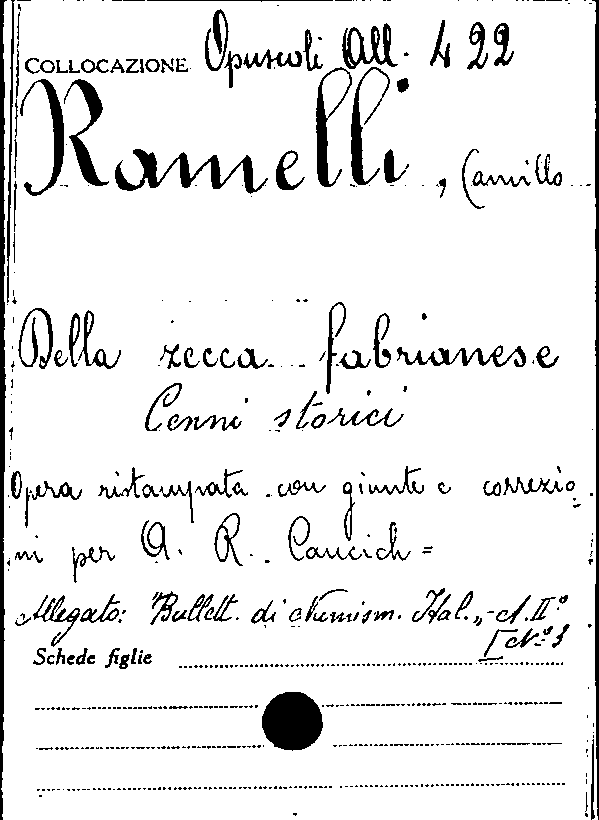 COLLOCAZIONE Opuscoli All. 422
Ramelli, Camillo
Della zecca fabrianese
Cenni storici
Opera ristampata con giunte e correzio=
ni per A. R. Caucich =
Allegato: "Bullett. di Numism. Ital.„ - A. II°
N° 3
Schede figlie